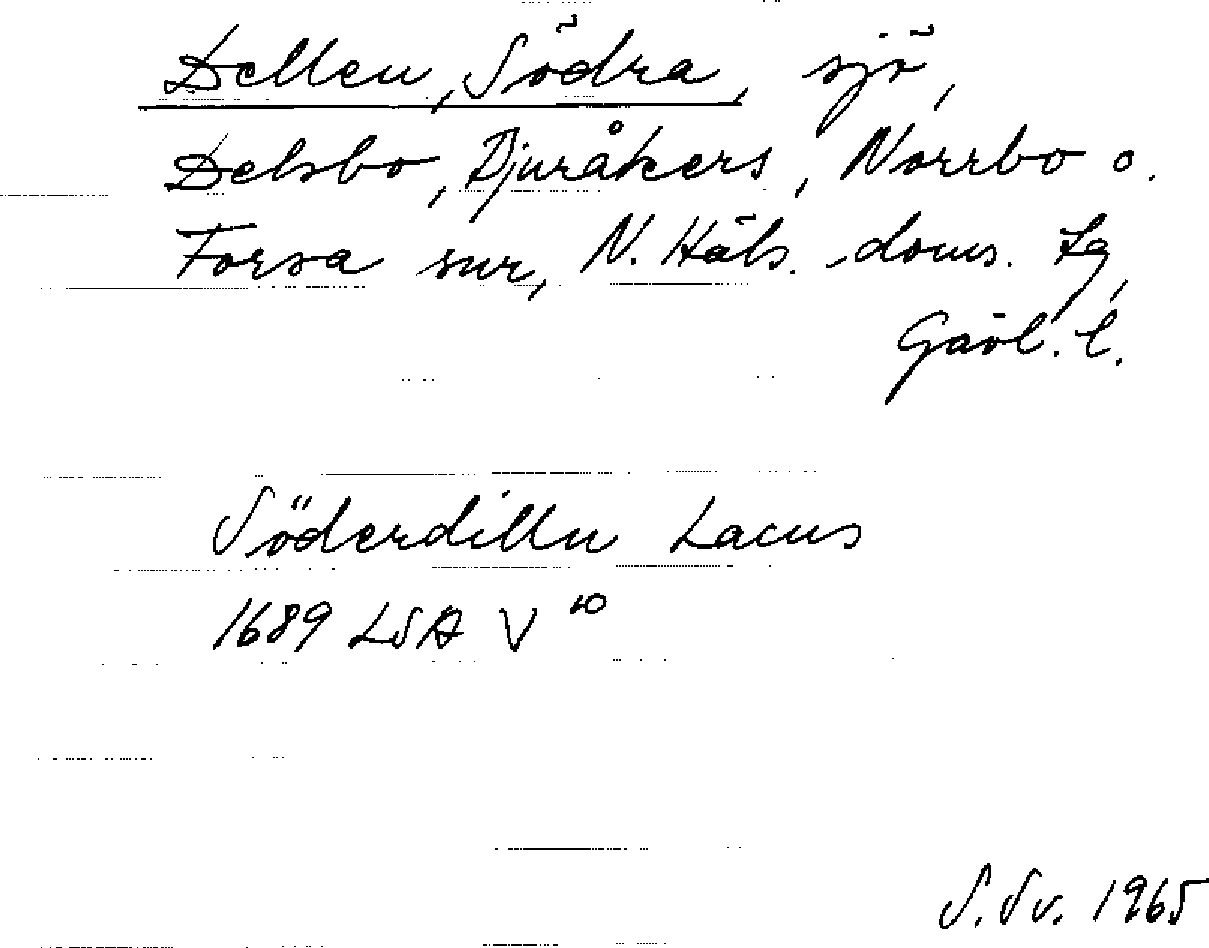 Dellen, Södra, sjö,
Delsbo, Bjuråkers, Norrbo o.
Forsa snr, N. Häls. doms. tg,
Gävl. l.
Söderdilln Lacus
1689 LSA V 10
S. Sv. 1965